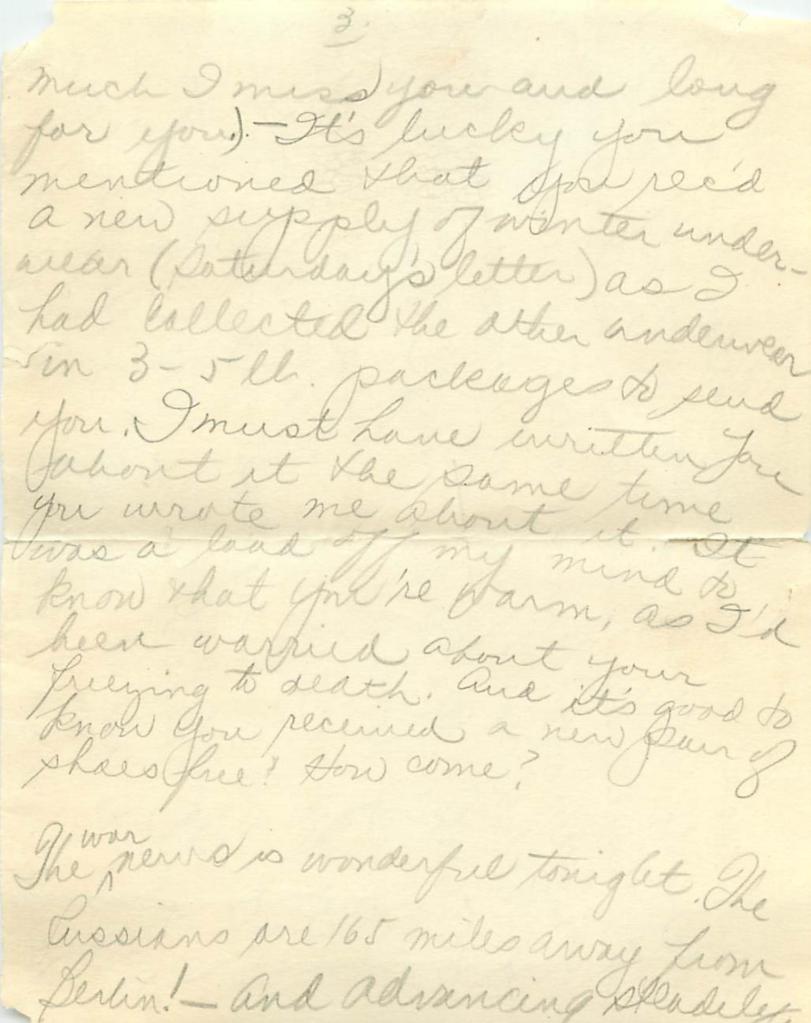 3.
much I miss you and long
for you). - It's lucky you
mentioned that you rec'd
a new supply of winter under-
wear (Saturday's letter) as I
had collected the other underwear
in 3-5 lb. packages to send
you. I must have written you
about it the same time
you wrote me about it. It
was a load off my mind to
know that you're warm, as I'd
been worried about your
freezing to death. And it's good to
know you received a new pair of
shoes free! How come?
The war news is wonderful tonight. The
Russians are 165 miles away from
Berlin! - And advancing steadily.